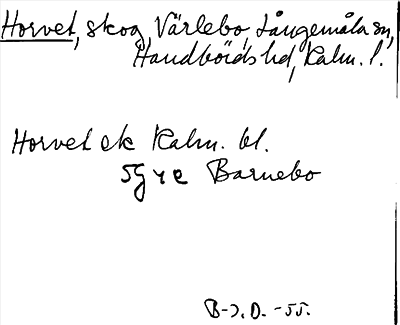 Horvet, skog, Värlebo, Långemåla sn,
Handbörds hd, Kalm. l.
Horvet ek Kalm. bl.
5G 4 e Barnebo
B-J. O. -55.